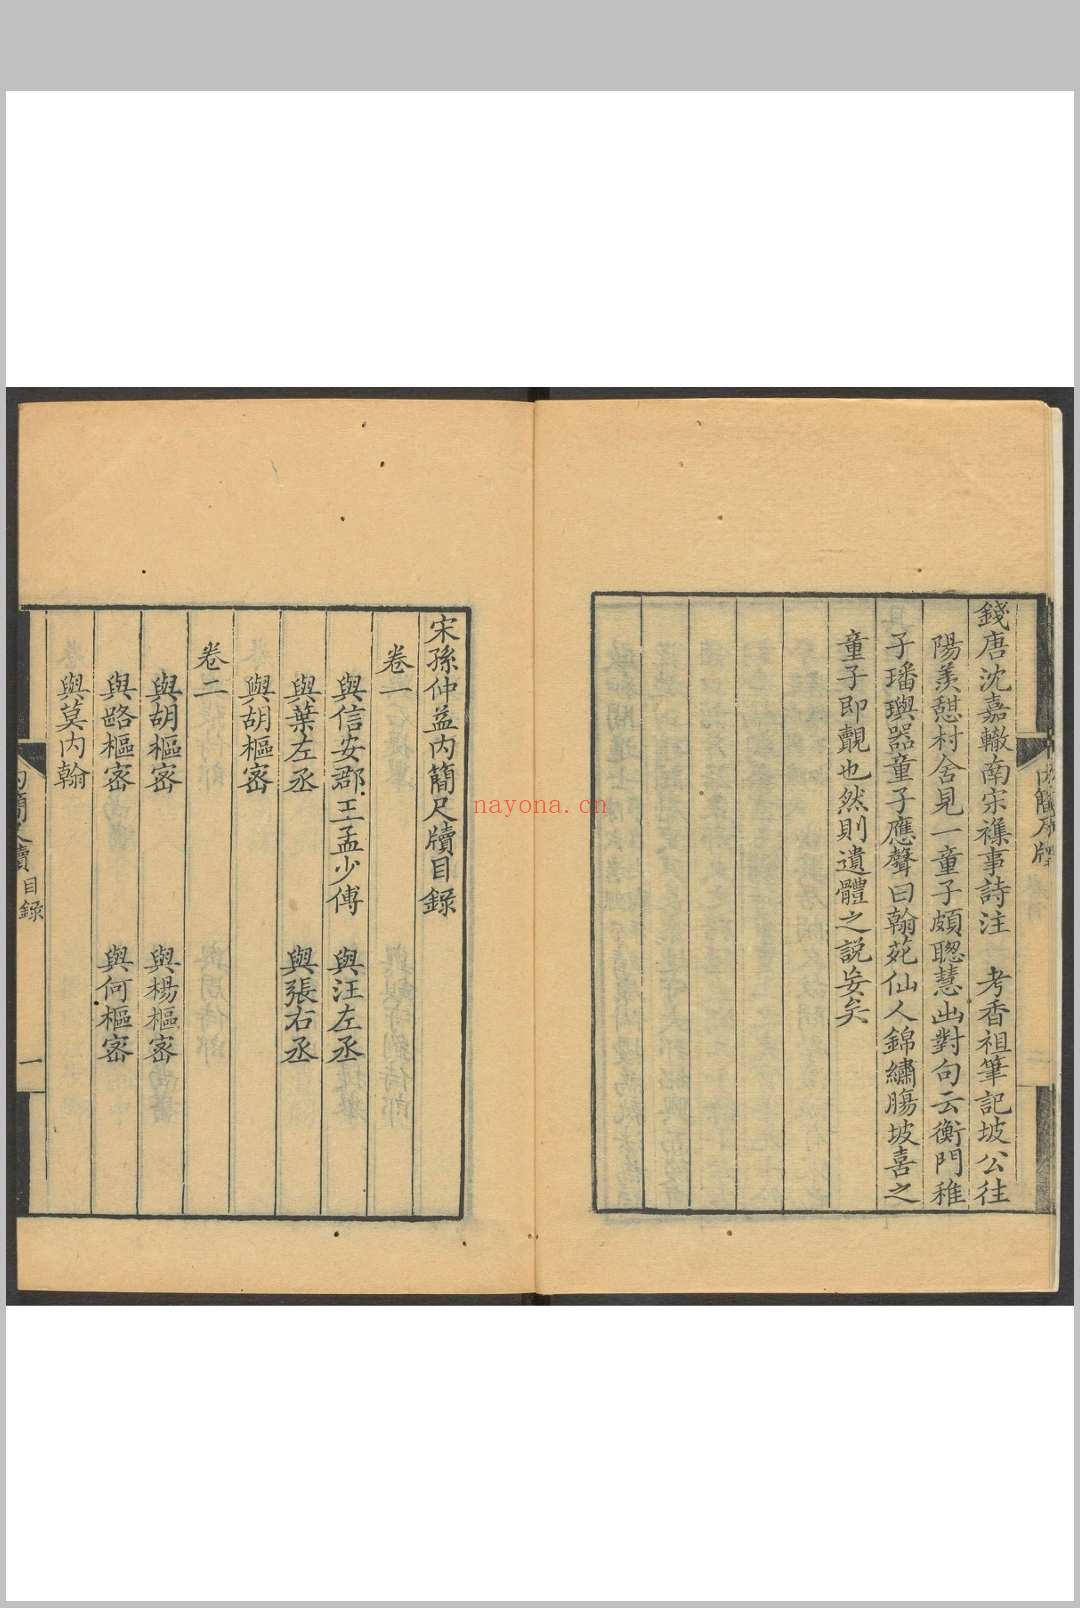 錢唐沈嘉轍南宋襍事詩注　考香祖筆記坡公往
陽羨憇村舍見一童子頗聦慧出對句云衡門稚
子璠璵器童子應聲曰翰苑仙人錦繡腸坡喜之
童子即覿也然則遺體之説妄矣
宋孫仲益内簡尺牘目録
卷一
與信安郡王孟少傅　與汪左丞
與葉左丞　與張右丞
與胡樞密
卷二
與胡樞密　與楊樞密
與路樞密　與何樞密
與莫内翰
内簡尺牘目録　一
nayona.cn